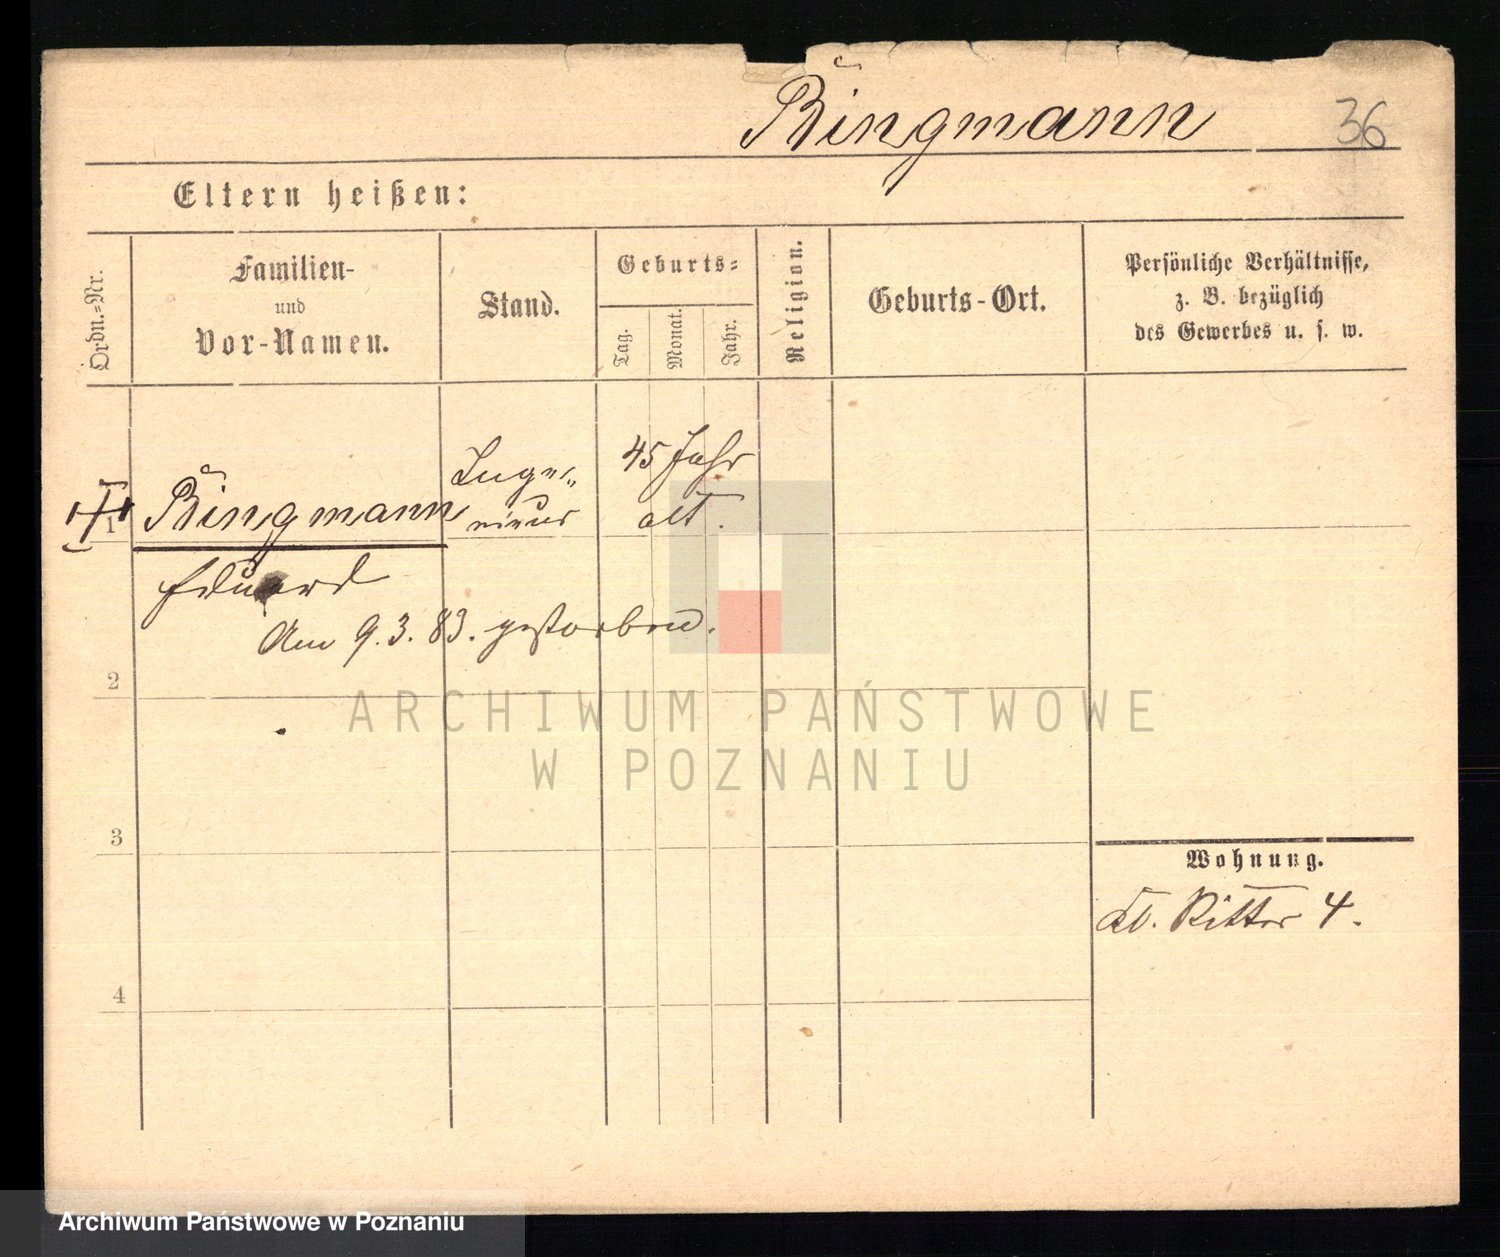 Bingmann
36
Eltern heißen:
Ordn.-Nr.
Familien-
und
Vor-Namen.
Stand.
Geburts-
Tag.
Monat.
Jahr.
Religion.
Geburts-Ort.
Persönliche Verhältnisse,
z. B. bezüglich
des Gewerbes u. s. w.
1
Bingmann
Eduard
Inge-
nieur
45 Jahr
alt.
Am 9. 3. 83. gestorben.
2
3
4
Wohnung.
Kl. Ritter 4.
ARCHIWUM PAŃSTWOWE
W POZNANIU
Archiwum Państwowe w Poznaniu